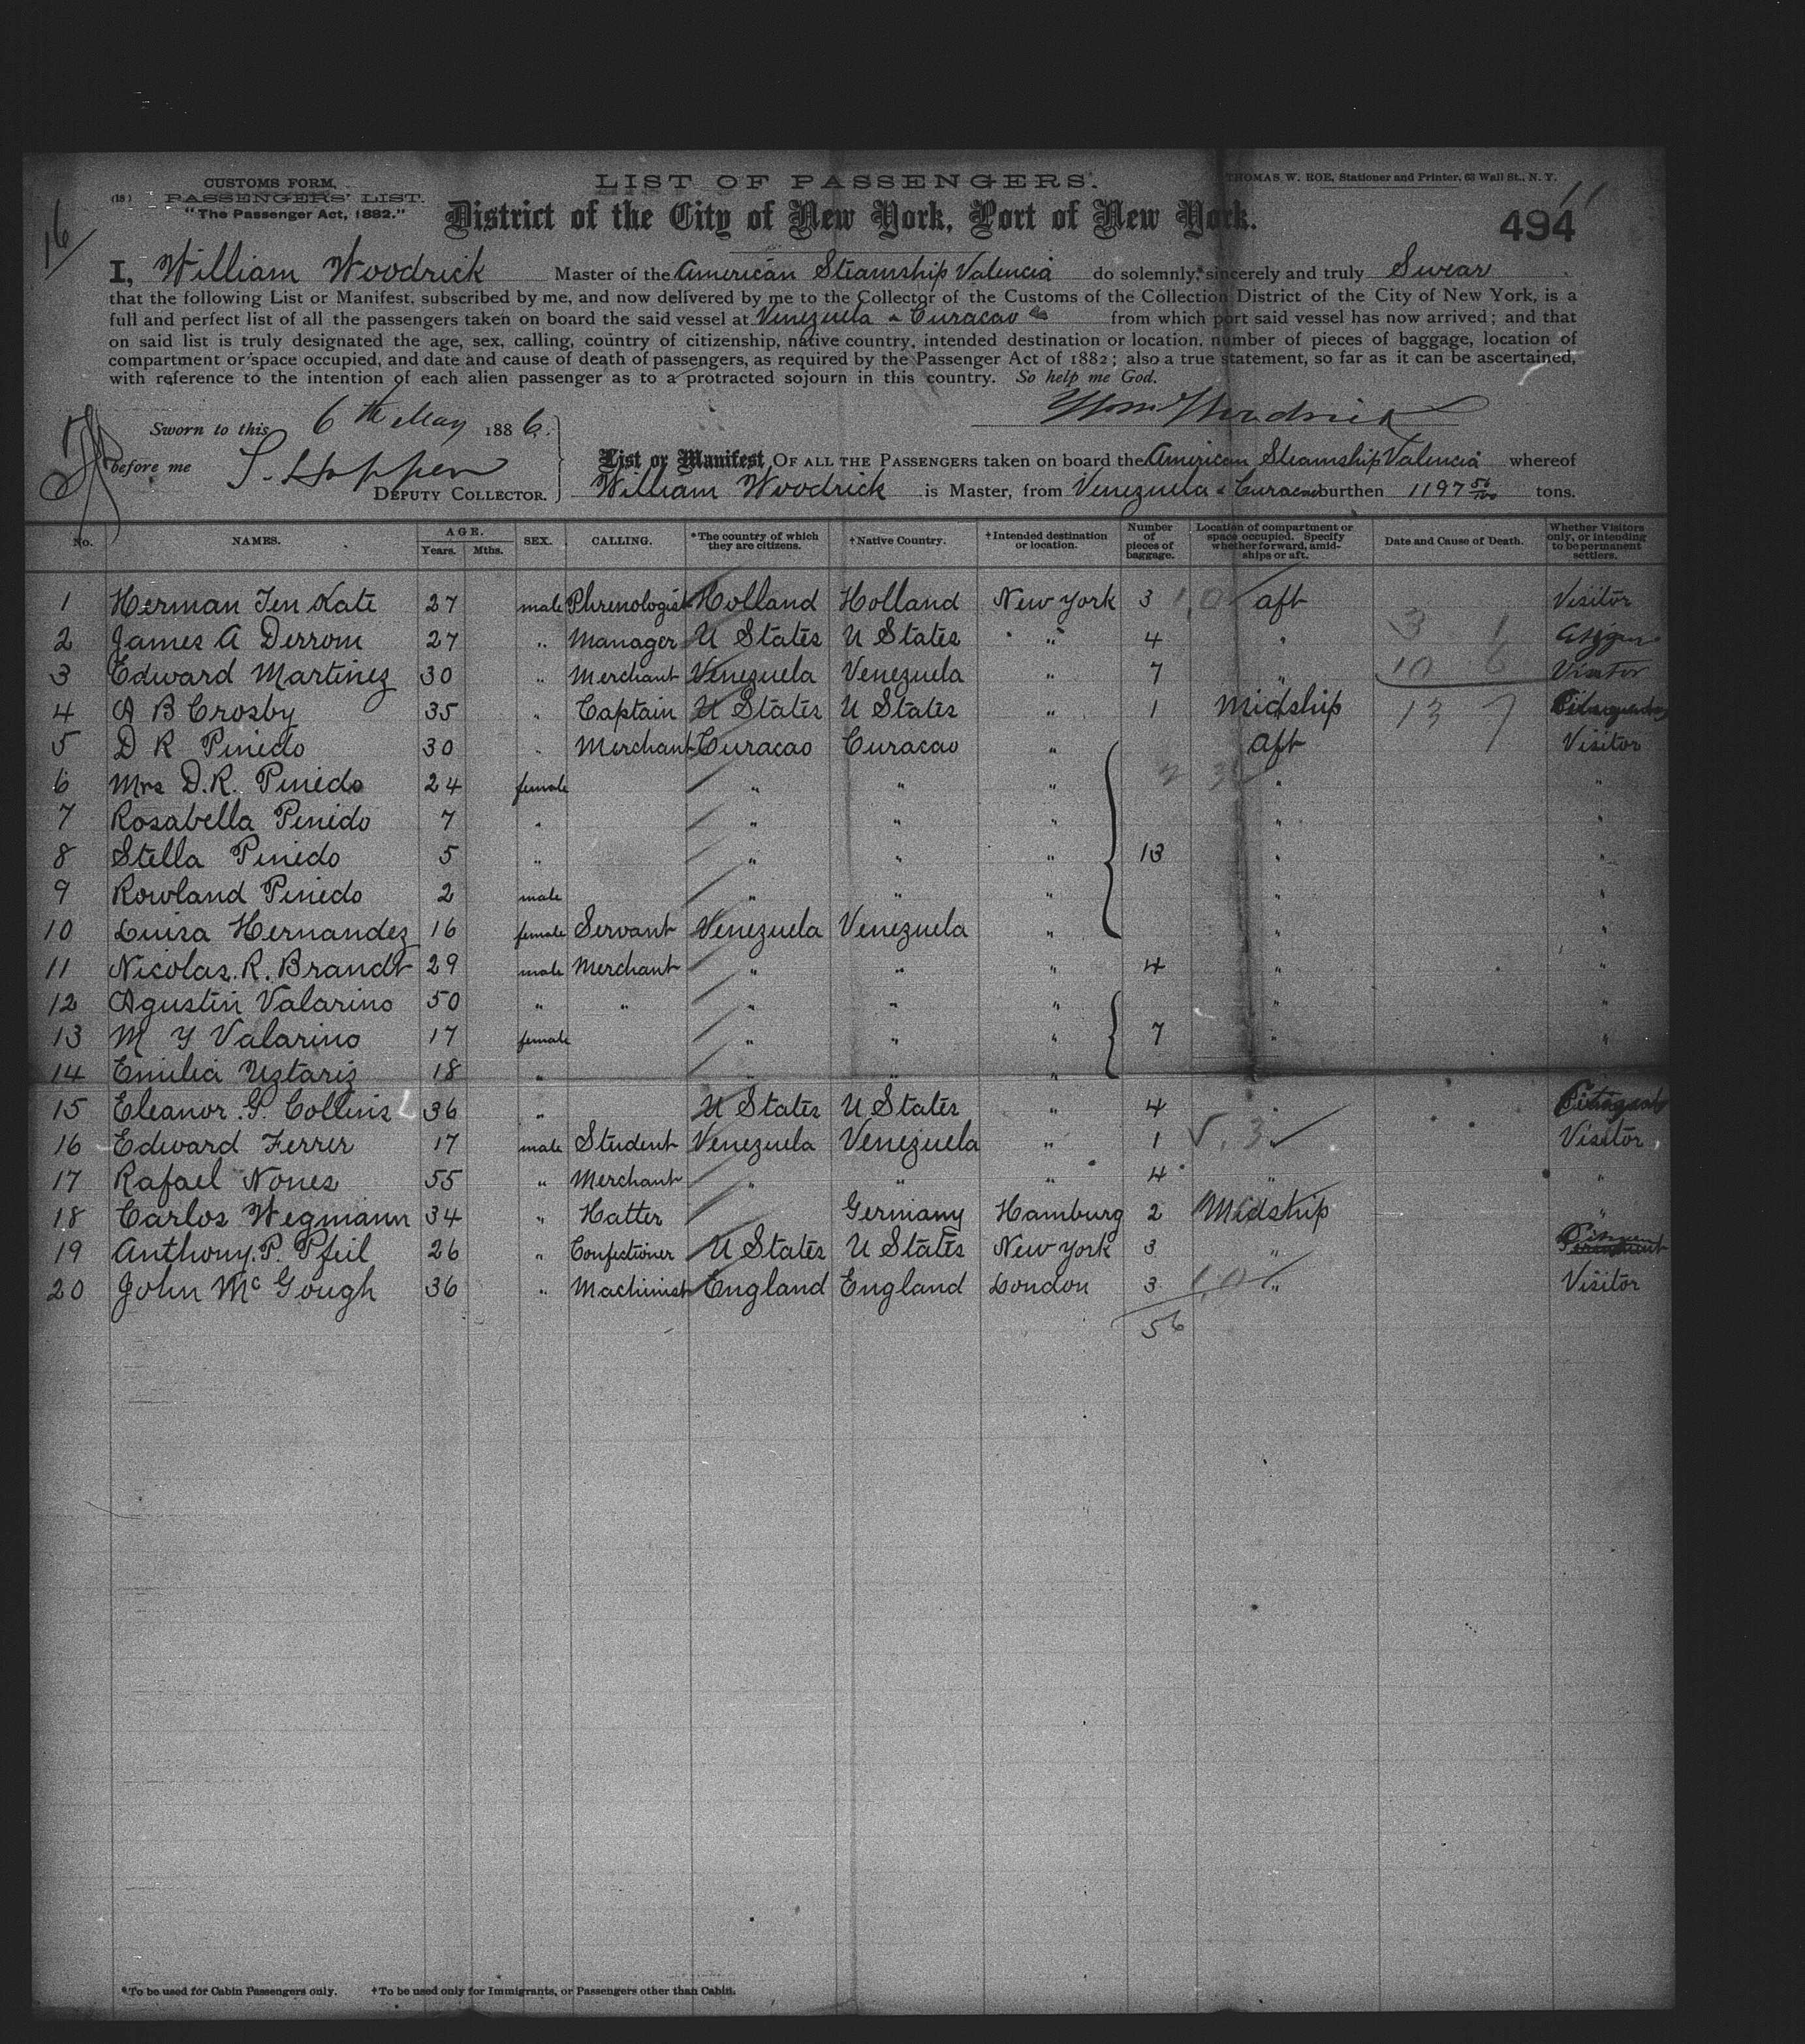 CUSTOMS FORM,
(18) PASSENGERS' LIST.
"The Passenger Act, 1882."
LIST OF PASSENGERS.
THOMAS W. ROE, Stationer and Printer, 63 Wall St., N. Y.
16
11
District of the City of New York, Port of New York.
494
I, William Woodrick Master of the American Steamship Valencia do solemnly, sincerely and truly Swear
that the following List or Manifest, subscribed by me, and now delivered by me to the Collector of the Customs of the Collection District of the City of New York, is a
full and perfect list of all the passengers taken on board the said vessel at Venezuela & Curacao from which port said vessel has now arrived; and that
on said list is truly designated the age, sex, calling, country of citizenship, native country, intended destination or location, number of pieces of baggage, location of
compartment or space occupied, and date and cause of death of passengers, as required by the Passenger Act of 1882; also a true statement, so far as it can be ascertained,
with reference to the intention of each alien passenger as to a protracted sojourn in this country. So help me God.
Wm Woodrick
Sworn to this 6th May 1886.
before me S. Hoppen
DEPUTY COLLECTOR.
List or Manifest OF ALL THE PASSENGERS taken on board the American Steamship Valencia whereof
William Woodrick is Master, from Venezuela & Curacao burthen 1197 56/100 tons.
No. NAMES. AGE. Years. Mths. SEX. CALLING. *The country of which they are citizens. †Native Country. †Intended destination or location. Number of pieces of baggage. Location of compartment or space occupied. Specify whether forward, amidships or aft. Date and Cause of Death. Whether Visitors only, or intending to be permanent settlers.
1 Herman Ten Kate 27 male Phrenologist Holland Holland New York 3 aft Visitor
2 James A Derrom 27 " Manager U States U States " 4 " Citizen
3 Edward Martinez 30 " Merchant Venezuela Venezuela " 7 " Visitor
4 A B Crosby 35 " Captain U States U States " 1 Midship
5 D R Pinedo 30 " Merchant Curacao Curacao " aft Visitor
6 Mrs D. R. Pinedo 24 female " " " " "
7 Rosabella Pinedo 7 " " " " " "
8 Stella Pinedo 5 " " " " 13 " "
9 Rowland Pinedo 2 male " " " " "
10 Luisa Hernandez 16 female Servant Venezuela Venezuela " " "
11 Nicolas. R. Brandt 29 male Merchant " " " 4 " "
12 Agustin Valarino 50 " " " " " " "
13 M Y Valarino 17 female " " " 7 " "
14 Emilia Uztariz 18 " " " "
15 Eleanor. G. Collins 36 " U States U States " 4 "
16 Edward Ferrer 17 male Student Venezuela Venezuela " 1 " Visitor
17 Rafael Nones 55 " Merchant " " " 4 " "
18 Carlos Wegmann 34 " Hatter Germany Hamburg 2 Midship "
19 Anthony. P. Pfeil 26 " Confectioner U States U States New York 3 " Citizen
20 John McGough 36 " Machinist England England London 3 " Visitor
56
3 1
10 6
13 7
*To be used for Cabin Passengers only. †To be used only for Immigrants, or Passengers other than Cabin.